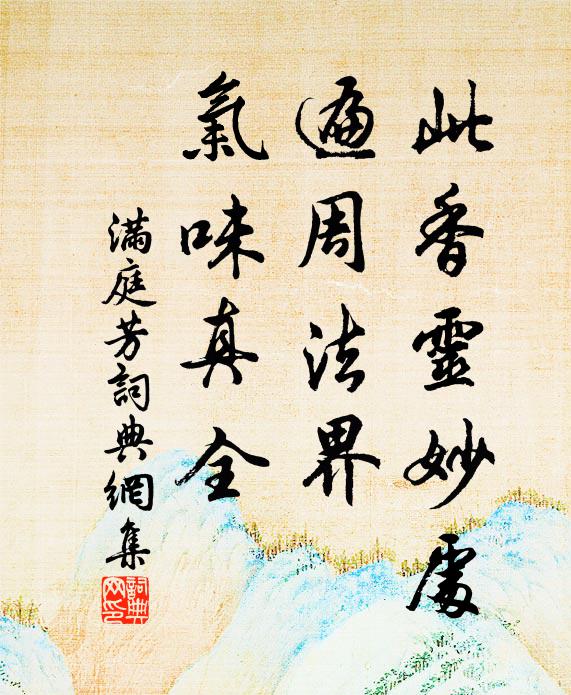 此香靈妙處
遍周法界
氣味真全
滿庭芳詞典網集
詞典